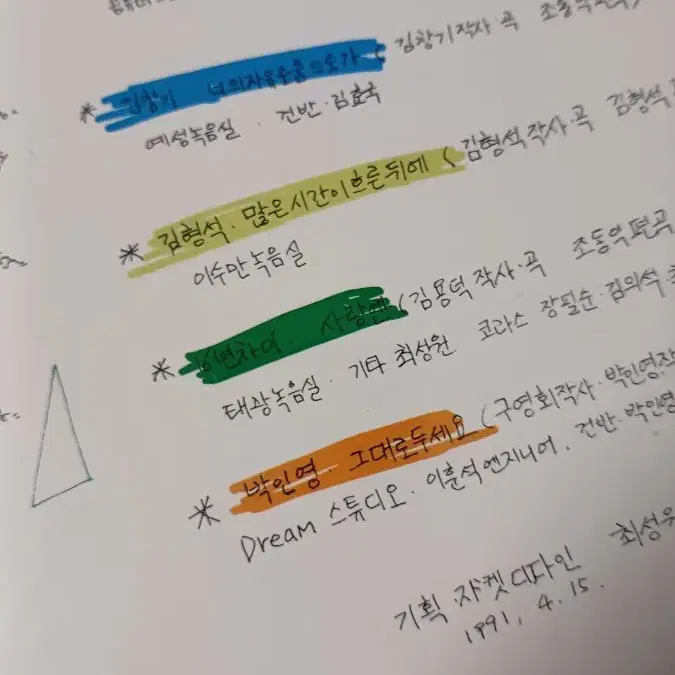 * 김창기 너의자유로움으로가 (김창기 작사·곡 조동익편곡)
예성녹음실 · 건반·김효국
* 김형석. 많은시간이흐른뒤에 (김형석 작사·곡 김형석
이수만녹음실
* 16년차이. 사랑엔 (김용덕 작사·곡 조동익편곡
태광녹음실 · 기타 최성원 코라스 장필순·김의석·
* 박인영. 그대로두세요 (구영회작사·박인영작
Dream 스튜디오·이훈석엔지니어. 건반·박인영
기획·쟈켓디자인 최성원
1991. 4. 15.